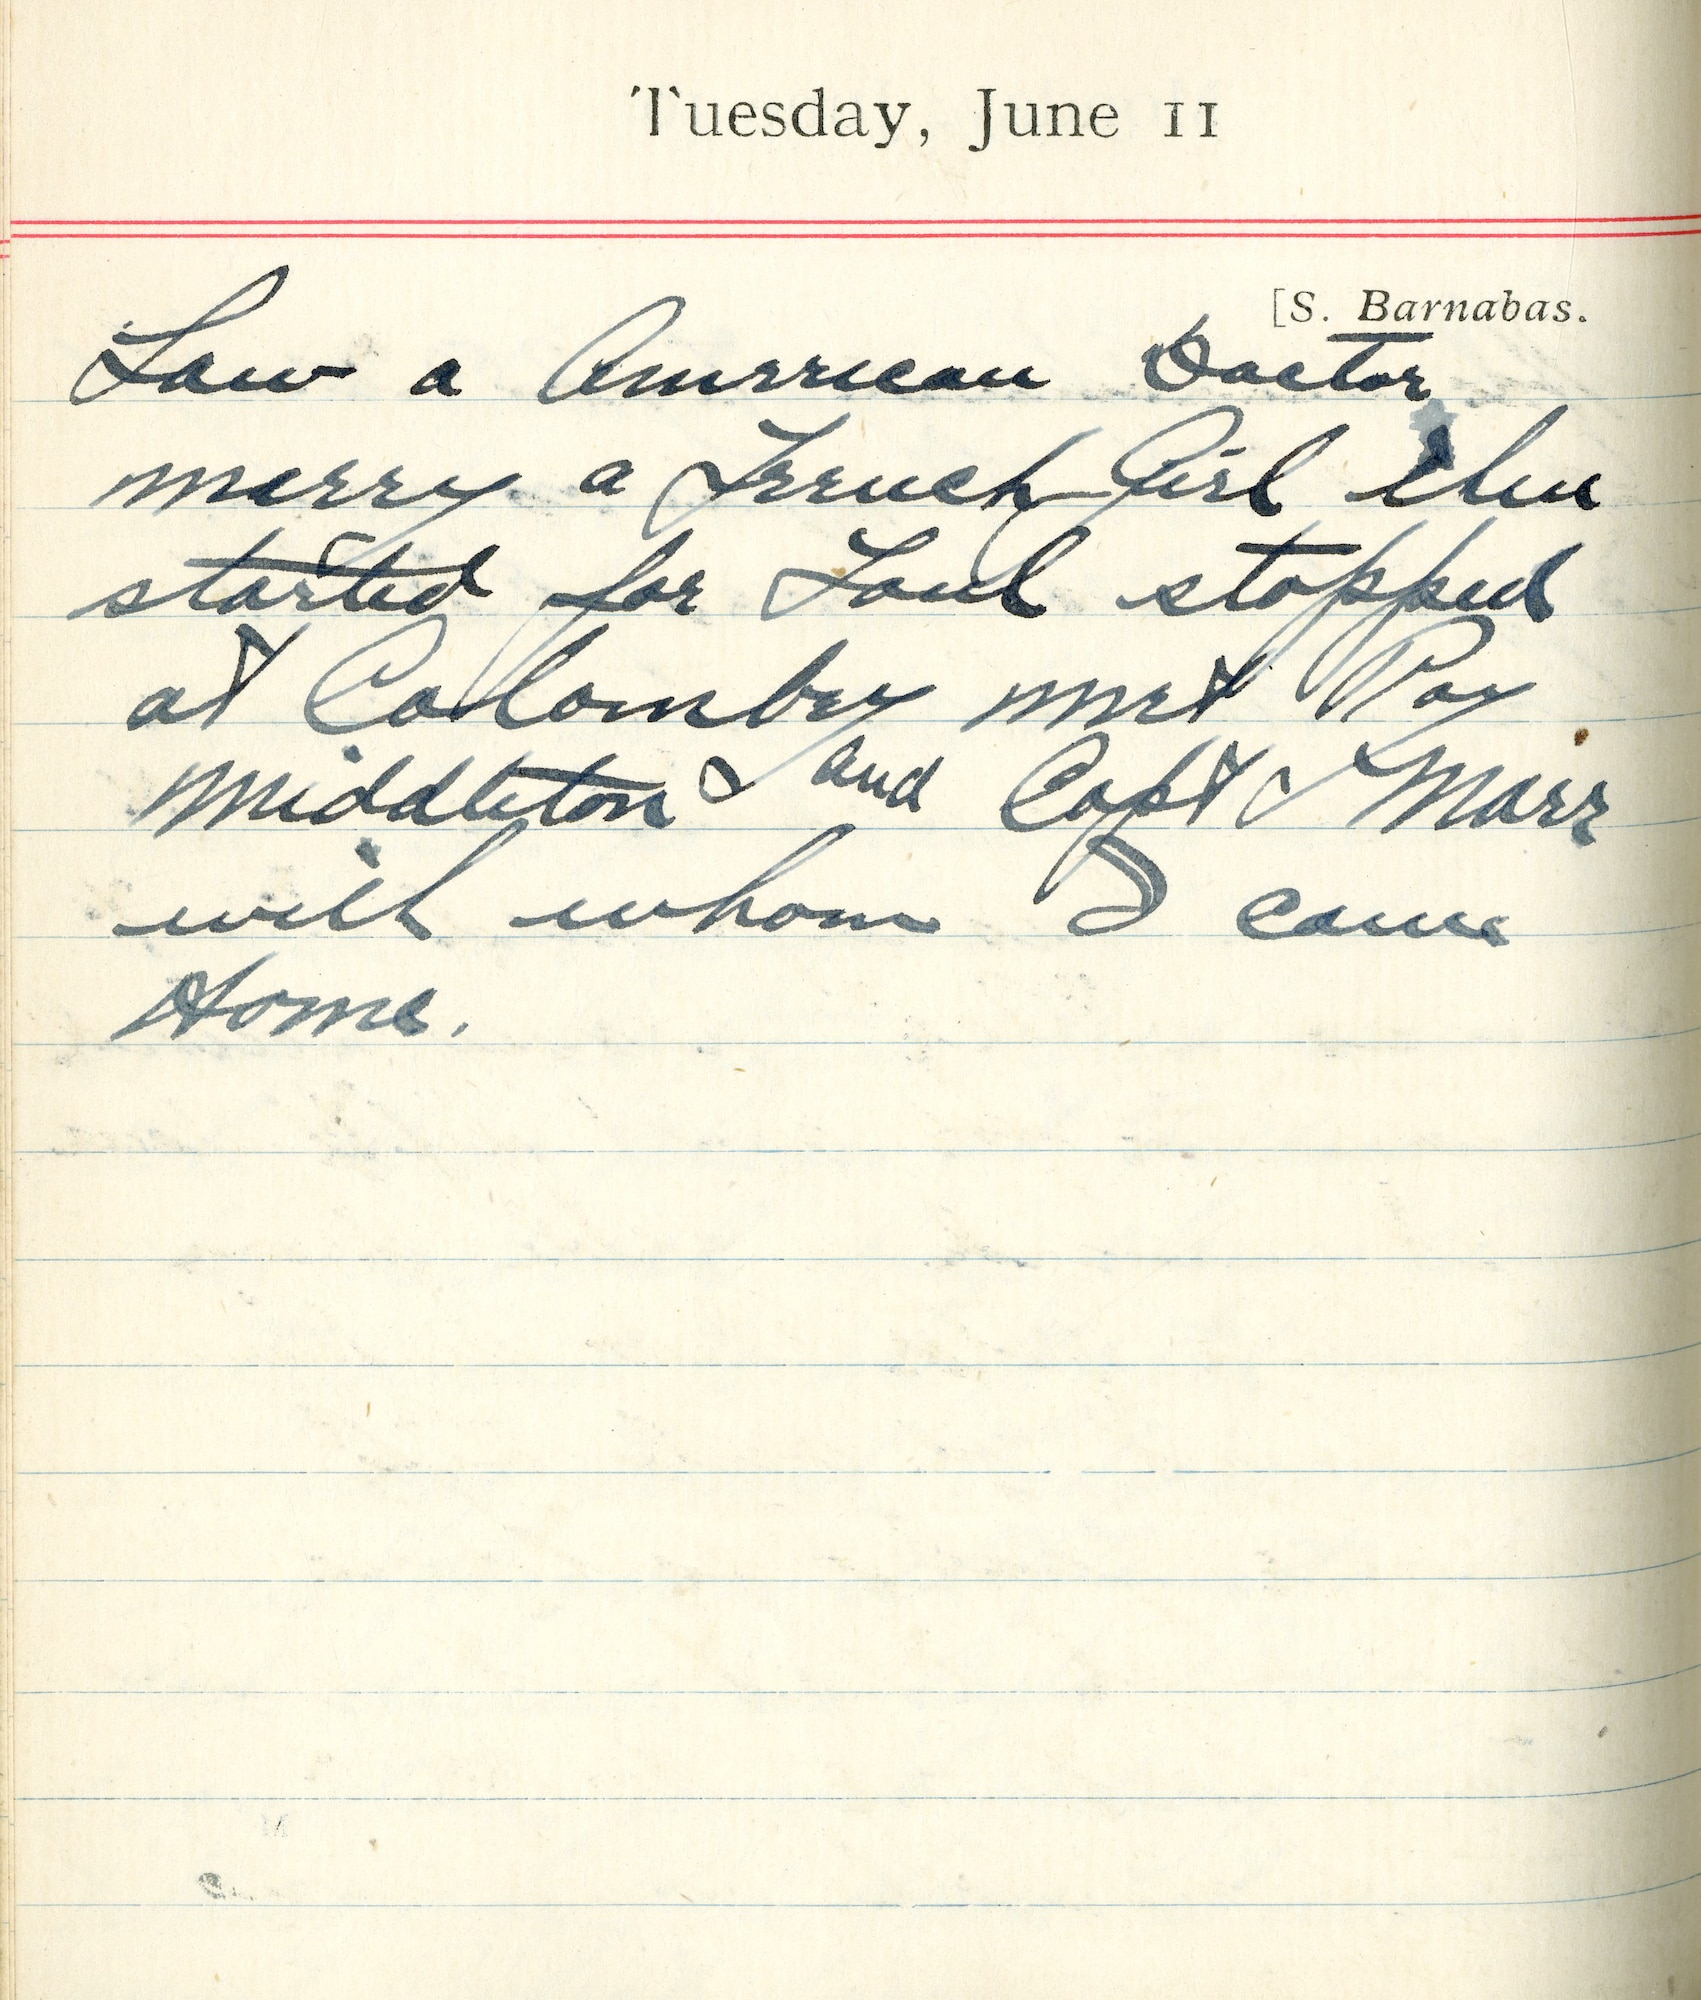 Tuesday, June 11
[S. Barnabas.
Saw a American Doctor
marry a French Girl then
started for Toul stopped
at Colombey met Roy
Middleton and Capt Marr
with whom I came
Home.